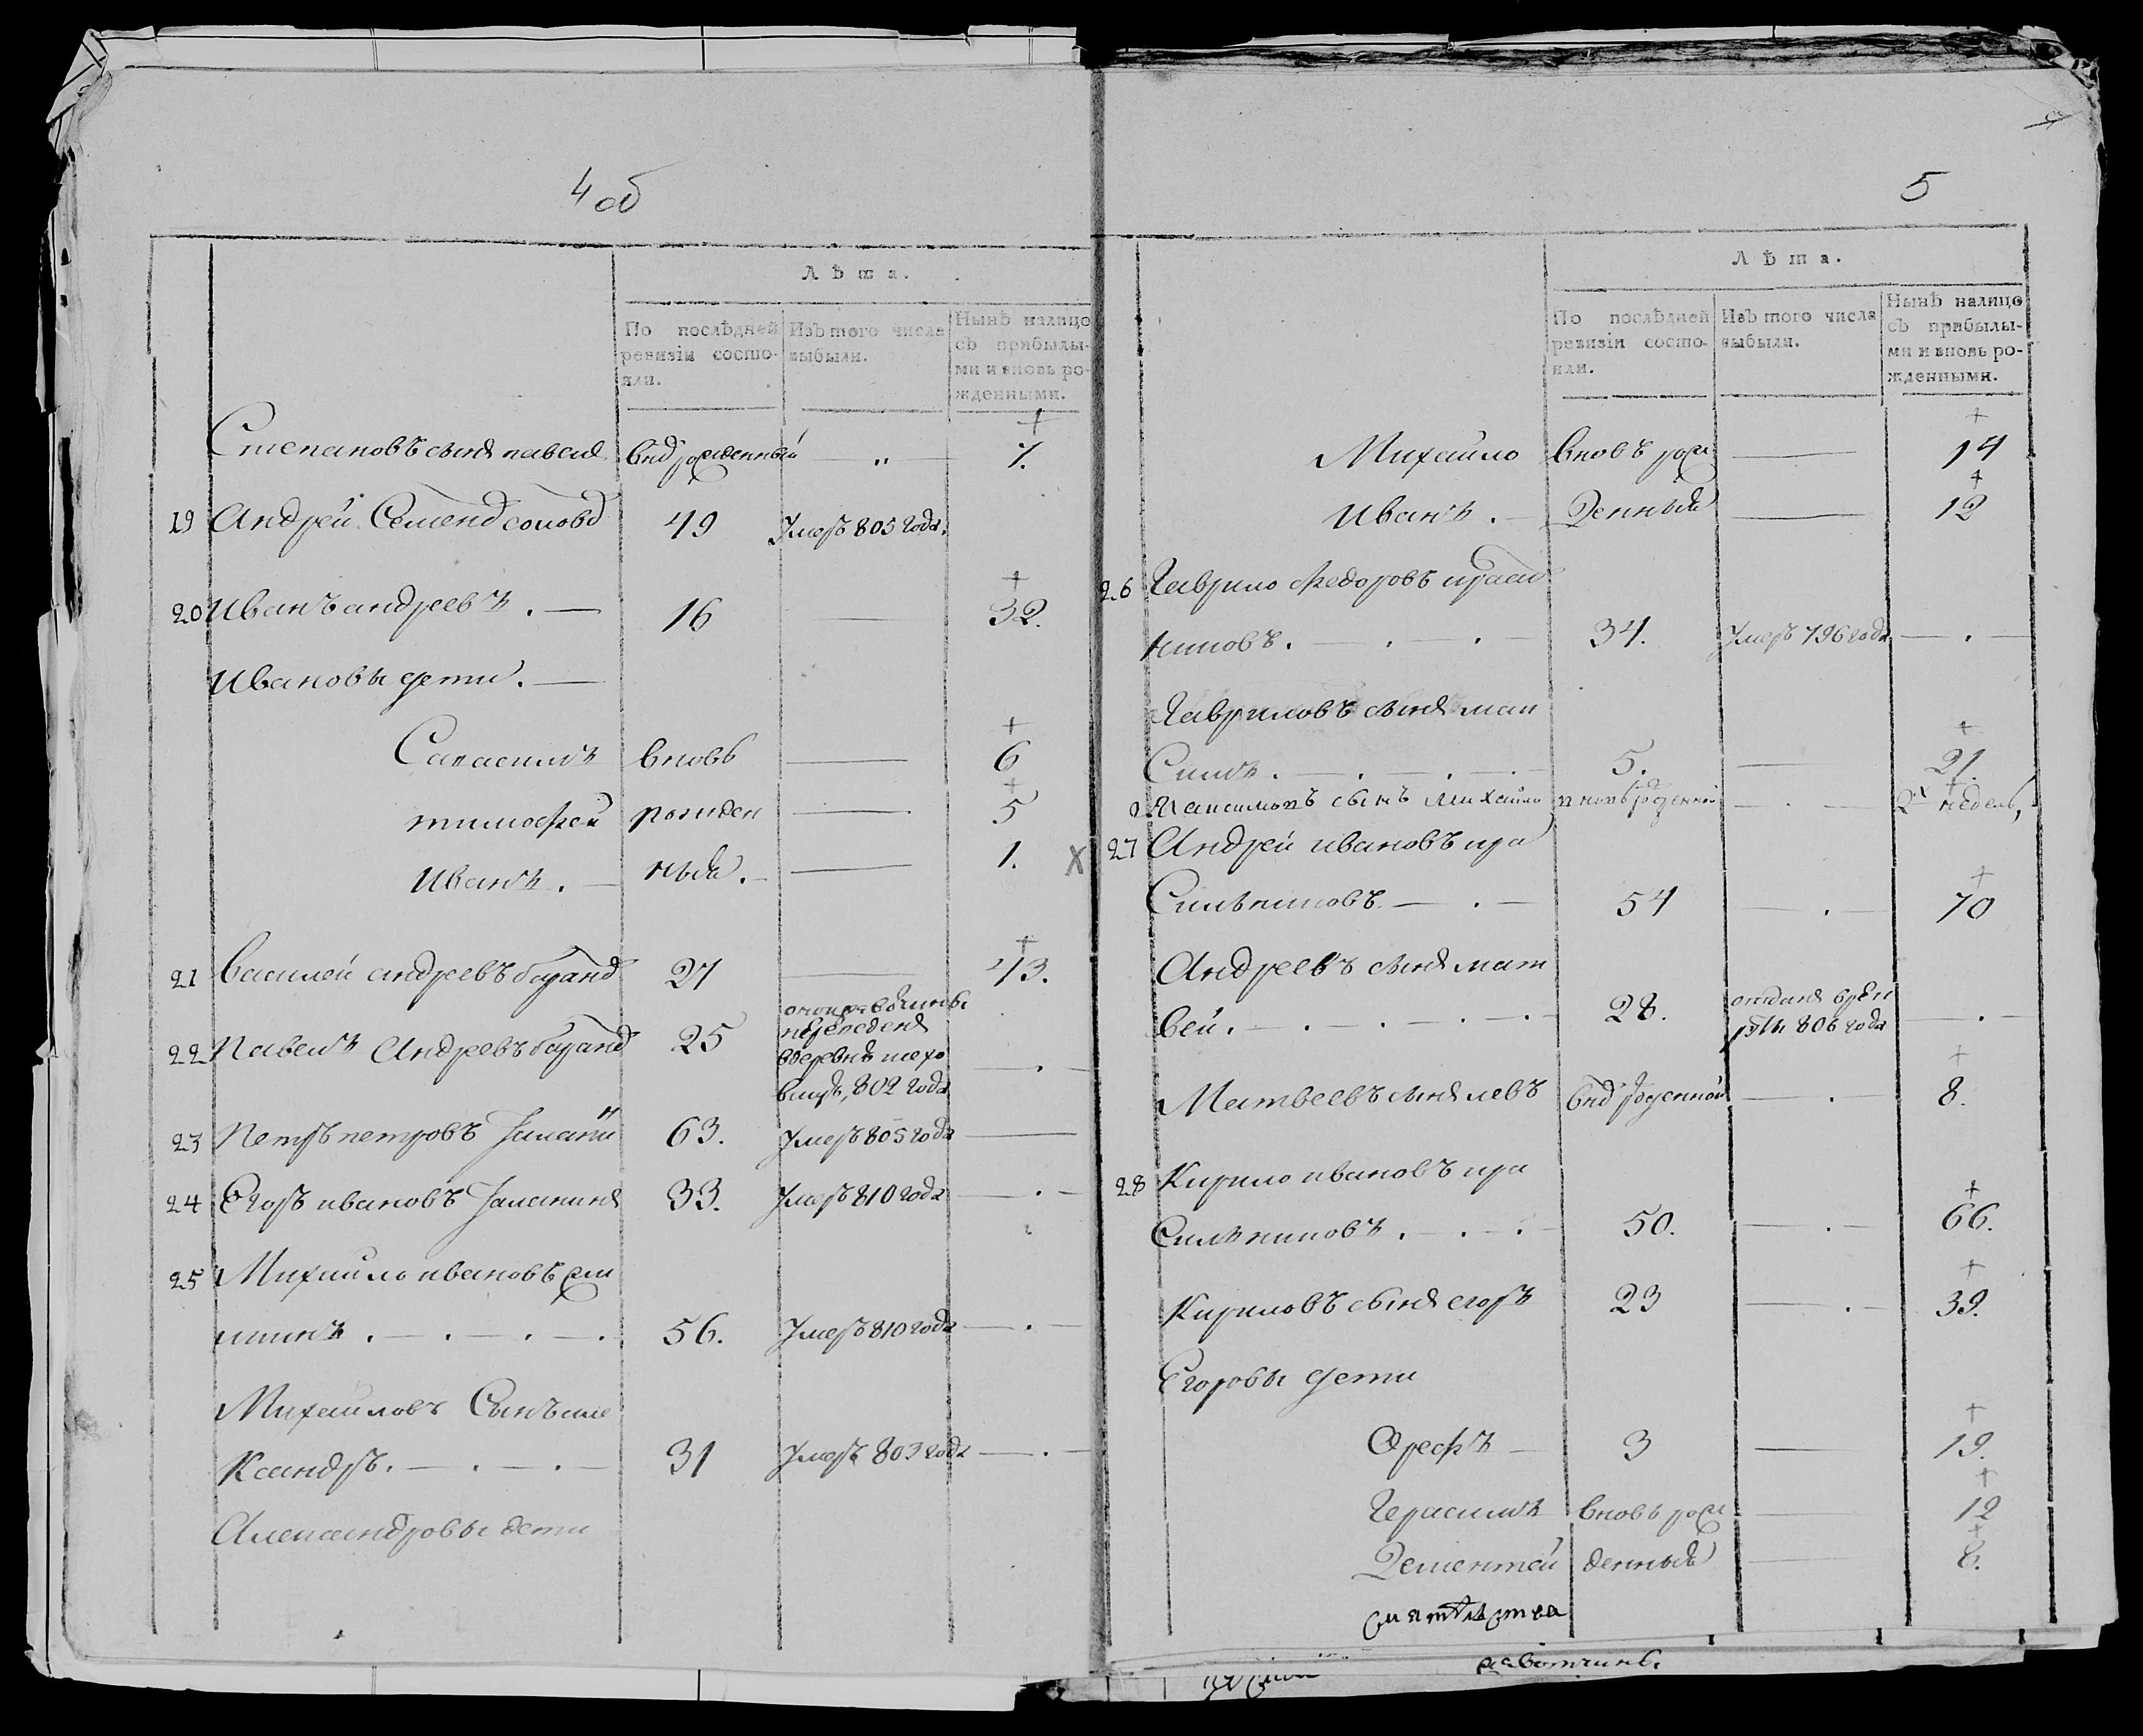 4 об
Лѣта.
По послѣдней ревизіи состо-
яли.
Изъ того числа
выбыли.
Нынѣ налицо
съ прибылы-
ми и вновь ро-
жденными.
Степановъ сынъ павелъ вновь рожденный „ 7.
19 Андрей Семеновъ 49 Умеръ 805 года.
20 Иванъ андреевъ . — 16 — 32.
Ивановы дети . —
вновь — 6
тимофей рожден — 5
Иванъ . — ныя . — 1.
21 Василей андреевъ 27 — 43.
22 Павелъ Андреевъ 25
переведенъ
вдеревню
802 года — . —
23 Петръ петровъ 63. Умеръ 805 года —
24 Егоръ ивановъ 33. Умеръ 810 года — . —
25 Михайло ивановъ
шинъ . — . — . — . 56. Умеръ 810 года — . —
Михайловъ Сынъ але
ксандръ . — . — . — 31 Умеръ 803 года — . —
Александровы дети
5
Лѣта.
По послѣдней
ревизіи состо-
яли.
Изъ того числа
выбыли.
Нынѣ налицо
съ прибылы-
ми и вновь ро-
жденными.
Михайло вновь рож — 14
Иванъ . — денныя — 12
26 Гаврило Федоровъ краси
34. Умеръ 796 года — . —
Гавриловъ сынъ мак
Симъ . — . — . — . — 5. — 21.
Максимовъ сынъ Михайло вновь рожденной — . — 2х недель,
27 Андрей ивановъ кра
Сильниковъ — . — 54 — . — 70
Андреевъ сынъ мат
вей . — . — . — . — 28. отданъ врек
руты 806 года — . —
Матвеевъ сынъ левъ вновь рожденной — . — 8.
28 Кирило ивановъ кра
Сильниковъ . — . — . — 50. — . — 66.
Кириловъ сынъ егоръ 23 — . — 39.
Егоровы дети
Орефъ — 3 — 19.
Герасимъ вновь рож — 12
Дементей денныя — 8.